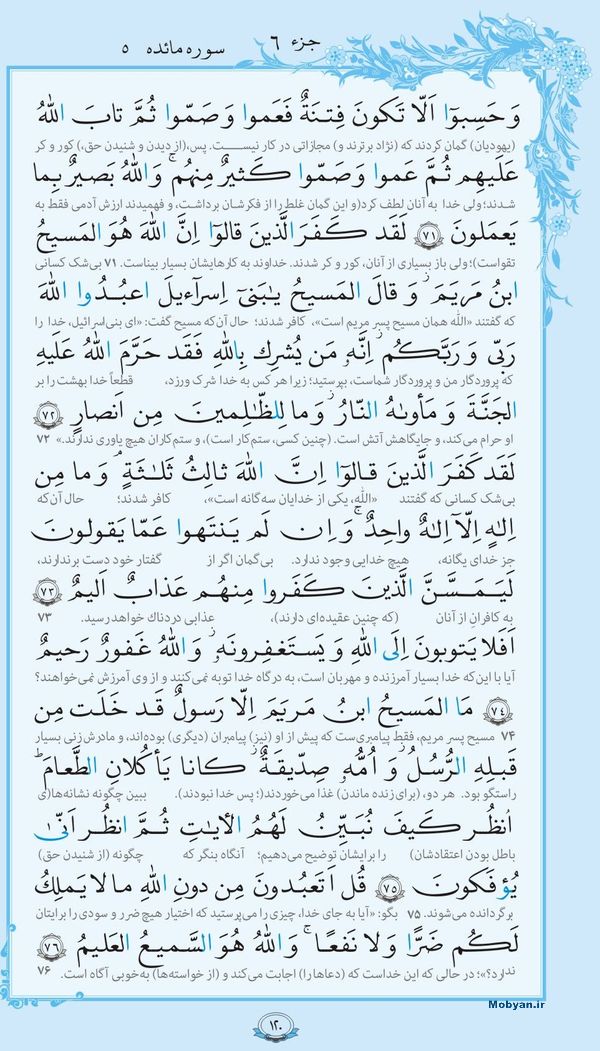 جزء ۶
سوره مائده ۵
وَ حَسِبوٓا اَلّا تَكونَ فِتنَةٌ فَعَموا وَ صَمّوا ثُمَّ تابَ اللهُ
(یهودیان) گمان کردند که (نژاد برترند و) مجازاتی در کار نیست. پس، (از دیدن و شنیدن حق،) کور و کر
عَلَيهِم ثُمَّ عَموا وَ صَمّوا كَثيرٌ مِنهُم ۚ وَ اللهُ بَصيرٌ بِما
شدند؛ ولی خدا به آنان لطف کرد (و این گمان غلط را از فکرشان برداشت، و فهمیدند ارزش آدمی فقط به
يَعمَلونَ ۷۱ لَقَد كَفَرَ الَّذينَ قالوٓا اِنَّ اللهَ هُوَ المَسيحُ
تقواست)؛ ولی باز بسیاری از آنان، کور و کر شدند. خداوند به کارهایشان بسیار بیناست. ۷۱ بی‌شک کسانی
ابنُ مَريَمَ ۖ وَ قالَ المَسيحُ يٰبَنىٓ اِسرآءيلَ اعبُدُوا اللهَ
که گفتند «الله همان مسیح پسر مریم است»، کافر شدند؛ حال آن‌که مسیح گفت: «ای بنی‌اسرائیل، خدا را
رَبّى وَ رَبَّكُم ۖ اِنَّهٗ مَن يُشرِك بِاللهِ فَقَد حَرَّمَ اللهُ عَلَيهِ
که پروردگار من و پروردگار شماست، بپرستید؛ زیرا هر کس به خدا شرک ورزد، قطعاً خدا بهشت را بر
الجَنَّةَ وَ مَأوىٰهُ النّارُ ۖ وَ ما لِلظّالِمينَ مِن اَنصارٍ ۷۲
او حرام می‌کند، و جایگاهش آتش است. (چنین کسی، ستم‌کار است)، و ستم‌کاران هیچ یاوری ندارند.» ۷۲
لَقَد كَفَرَ الَّذينَ قالوٓا اِنَّ اللهَ ثالِثُ ثَلٰثَةٍ ۘ وَ ما مِن
بی‌شک کسانی که گفتند «الله، یکی از خدایان سه‌گانه است»، کافر شدند؛ حال آن‌که
اِلٰهٍ اِلّآ اِلٰهٌ واحِدٌ ۚ وَ اِن لَم يَنتَهوا عَمّا يَقولونَ
جز خدای یگانه، هیچ خدایی وجود ندارد. بی‌گمان اگر از گفتار خود دست برندارند،
لَيَمَسَّنَّ الَّذينَ كَفَروا مِنهُم عَذابٌ اَليمٌ ۷۳
به کافران از آنان (که چنین عقیده‌ای دارند)، عذابی دردناک خواهد رسید. ۷۳
اَفَلا يَتوبونَ اِلَى اللهِ وَ يَستَغفِرونَهٗ ۚ وَ اللهُ غَفورٌ رَحيمٌ
آیا با این‌که خدا بسیار آمرزنده و مهربان است، به درگاه خدا توبه نمی‌کنند و از وی آمرزش نمی‌خواهند؟
۷۴ مَا المَسيحُ ابنُ مَريَمَ اِلّا رَسولٌ قَد خَلَت مِن
۷۴ مسیح پسر مریم، فقط پیامبری‌ست که پیش از او (نیز) پیامبران (دیگری) بوده‌اند، و مادرش زنی بسیار
قَبلِهِ الرُّسُلُ وَ اُمُّهٗ صِدّيقَةٌ ۖ كانا يَأكُلانِ الطَّعامَ ۗ
راستگو بود. هر دو، (برای زنده ماندن) غذا می‌خوردند؛ (پس خدا نبودند). ببین چگونه نشانه‌ها(ی
اُنظُر كَيفَ نُبَيِّنُ لَهُمُ الأٰياتِ ثُمَّ انظُر اَنّىٰ
باطل بودن اعتقادشان) را برایشان توضیح می‌دهیم؛ آنگاه بنگر که چگونه (از شنیدن حق)
يُؤفَكونَ ۷۵ قُل اَتَعبُدونَ مِن دونِ اللهِ ما لا يَملِكُ
برگردانده می‌شوند. ۷۵ بگو: «آیا به جای خدا، چیزی را می‌پرستید که اختیار هیچ ضرر و سودی را برایتان
لَكُم ضَرًّا وَ لا نَفعًا ۚ وَ اللهُ هُوَ السَّميعُ العَليمُ ۷۶
ندارد؟»؛ در حالی که این خداست که (دعاها را) اجابت می‌کند و (از خواسته‌ها) به‌خوبی آگاه است. ۷۶
Mobyan.ir
۱۲۰